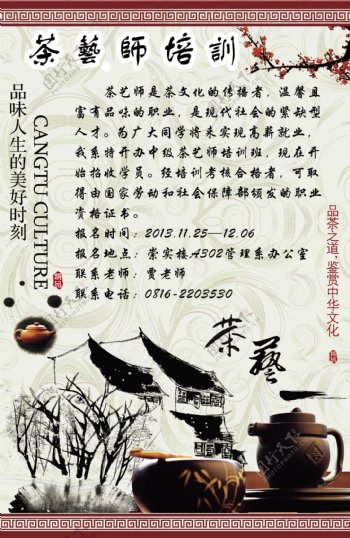 茶藝師培訓
品味人生的美好时刻
CANGTU CULTURE
茶艺师是茶文化的传播者，温馨且
富有品味的职业，是现代社会的紧缺型
人才。为广大同学将来实现高薪就业，
我系特开办中级茶艺师培训班，现在开
始招收学员。经培训考核合格者，可取
得由国家劳动和社会保障部颁发的职业
资格证书。
报名时间：2013.11.25—12.06
报名地点：崇实楼A302管理系办公室
联系老师：贾老师
联系电话：0816-2203530
品茶之道，鉴赏中华文化
茶藝